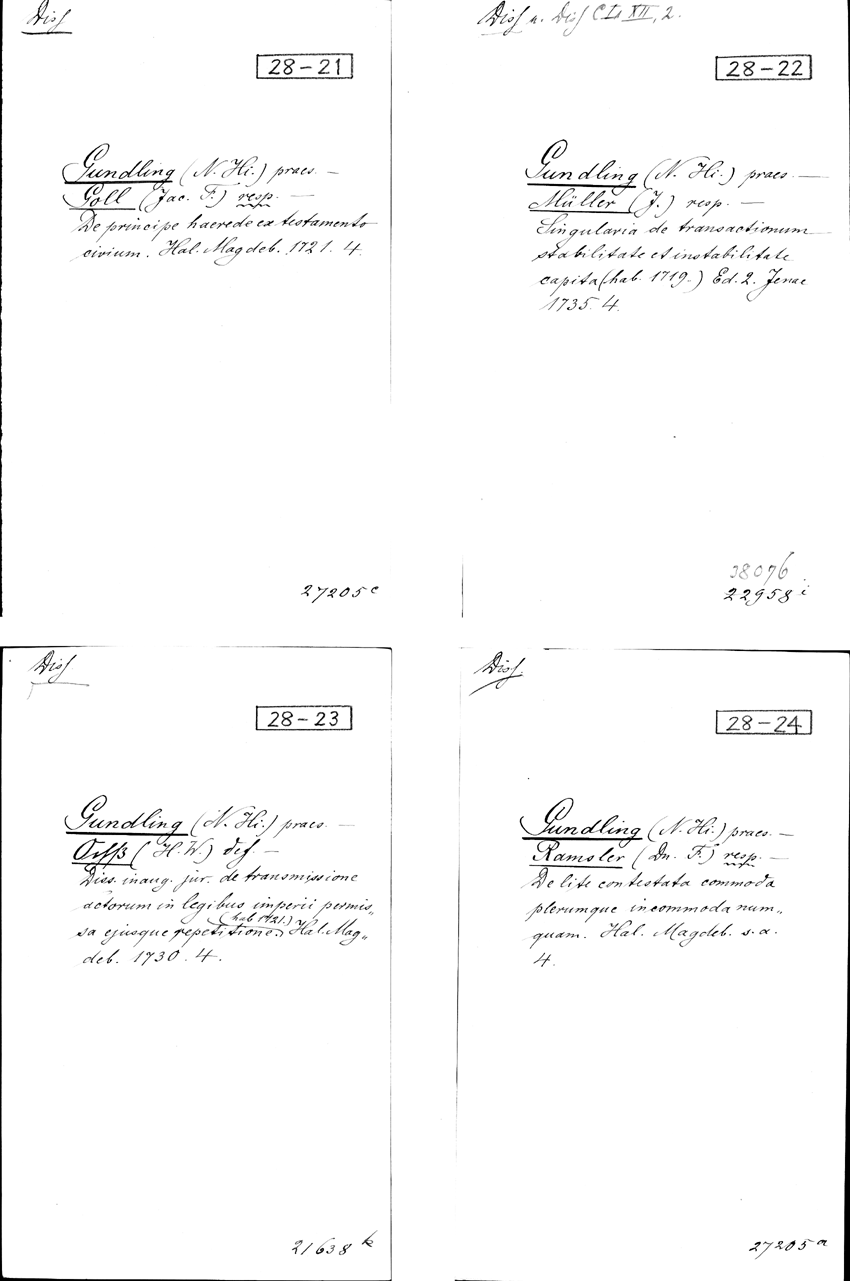 Diss
28-21
Gundling (N. Hi.) praes. —
Goll (Jac. F.) resp. —
De principe haerede ex testamento
civium. Hal. Magdeb. 1721. 4.
27205 c
Diss u. Diss C Ls XII, 2.
28-22
Gundling (N. Hi.) praes. —
Müller (J.) resp. —
Singularia de transactionum
stabilitate et instabilitate
capita (hab. 1719.) Ed. 2. Jenae
1735. 4.
38076
22958 i
Diss
28-23
Gundling (N. Hi.) praes. —
(H. W.) def. —
Diss. inaug. jur. de transmissione
actorum in legibus imperii permis„
(hab 1721.)
sa ejusque repetitione. Hal. Mag„
deb. 1730. 4.
21638 k
Diss.
28-24
Gundling (N. Hi.) praes. —
Ramsler (Dn. F.) resp. —
De lite contestata commoda
plerumque incommoda num„
quam. Hal. Magdeb. s. a.
4.
27205 a